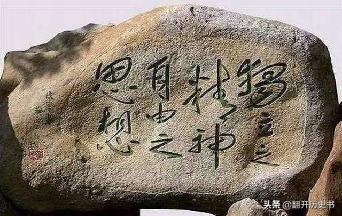 獨立之
精神
自由之
思想
头条 @翻开历史书